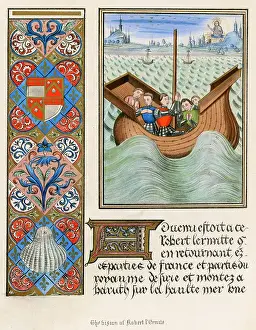 Advenu estoit a ce
Robert lermitte q̃
en retournant ez
parties de france et partis du
royaume de surie et montez a
baruth sur la haulte mer une
The Vision of Robert l'Ermite